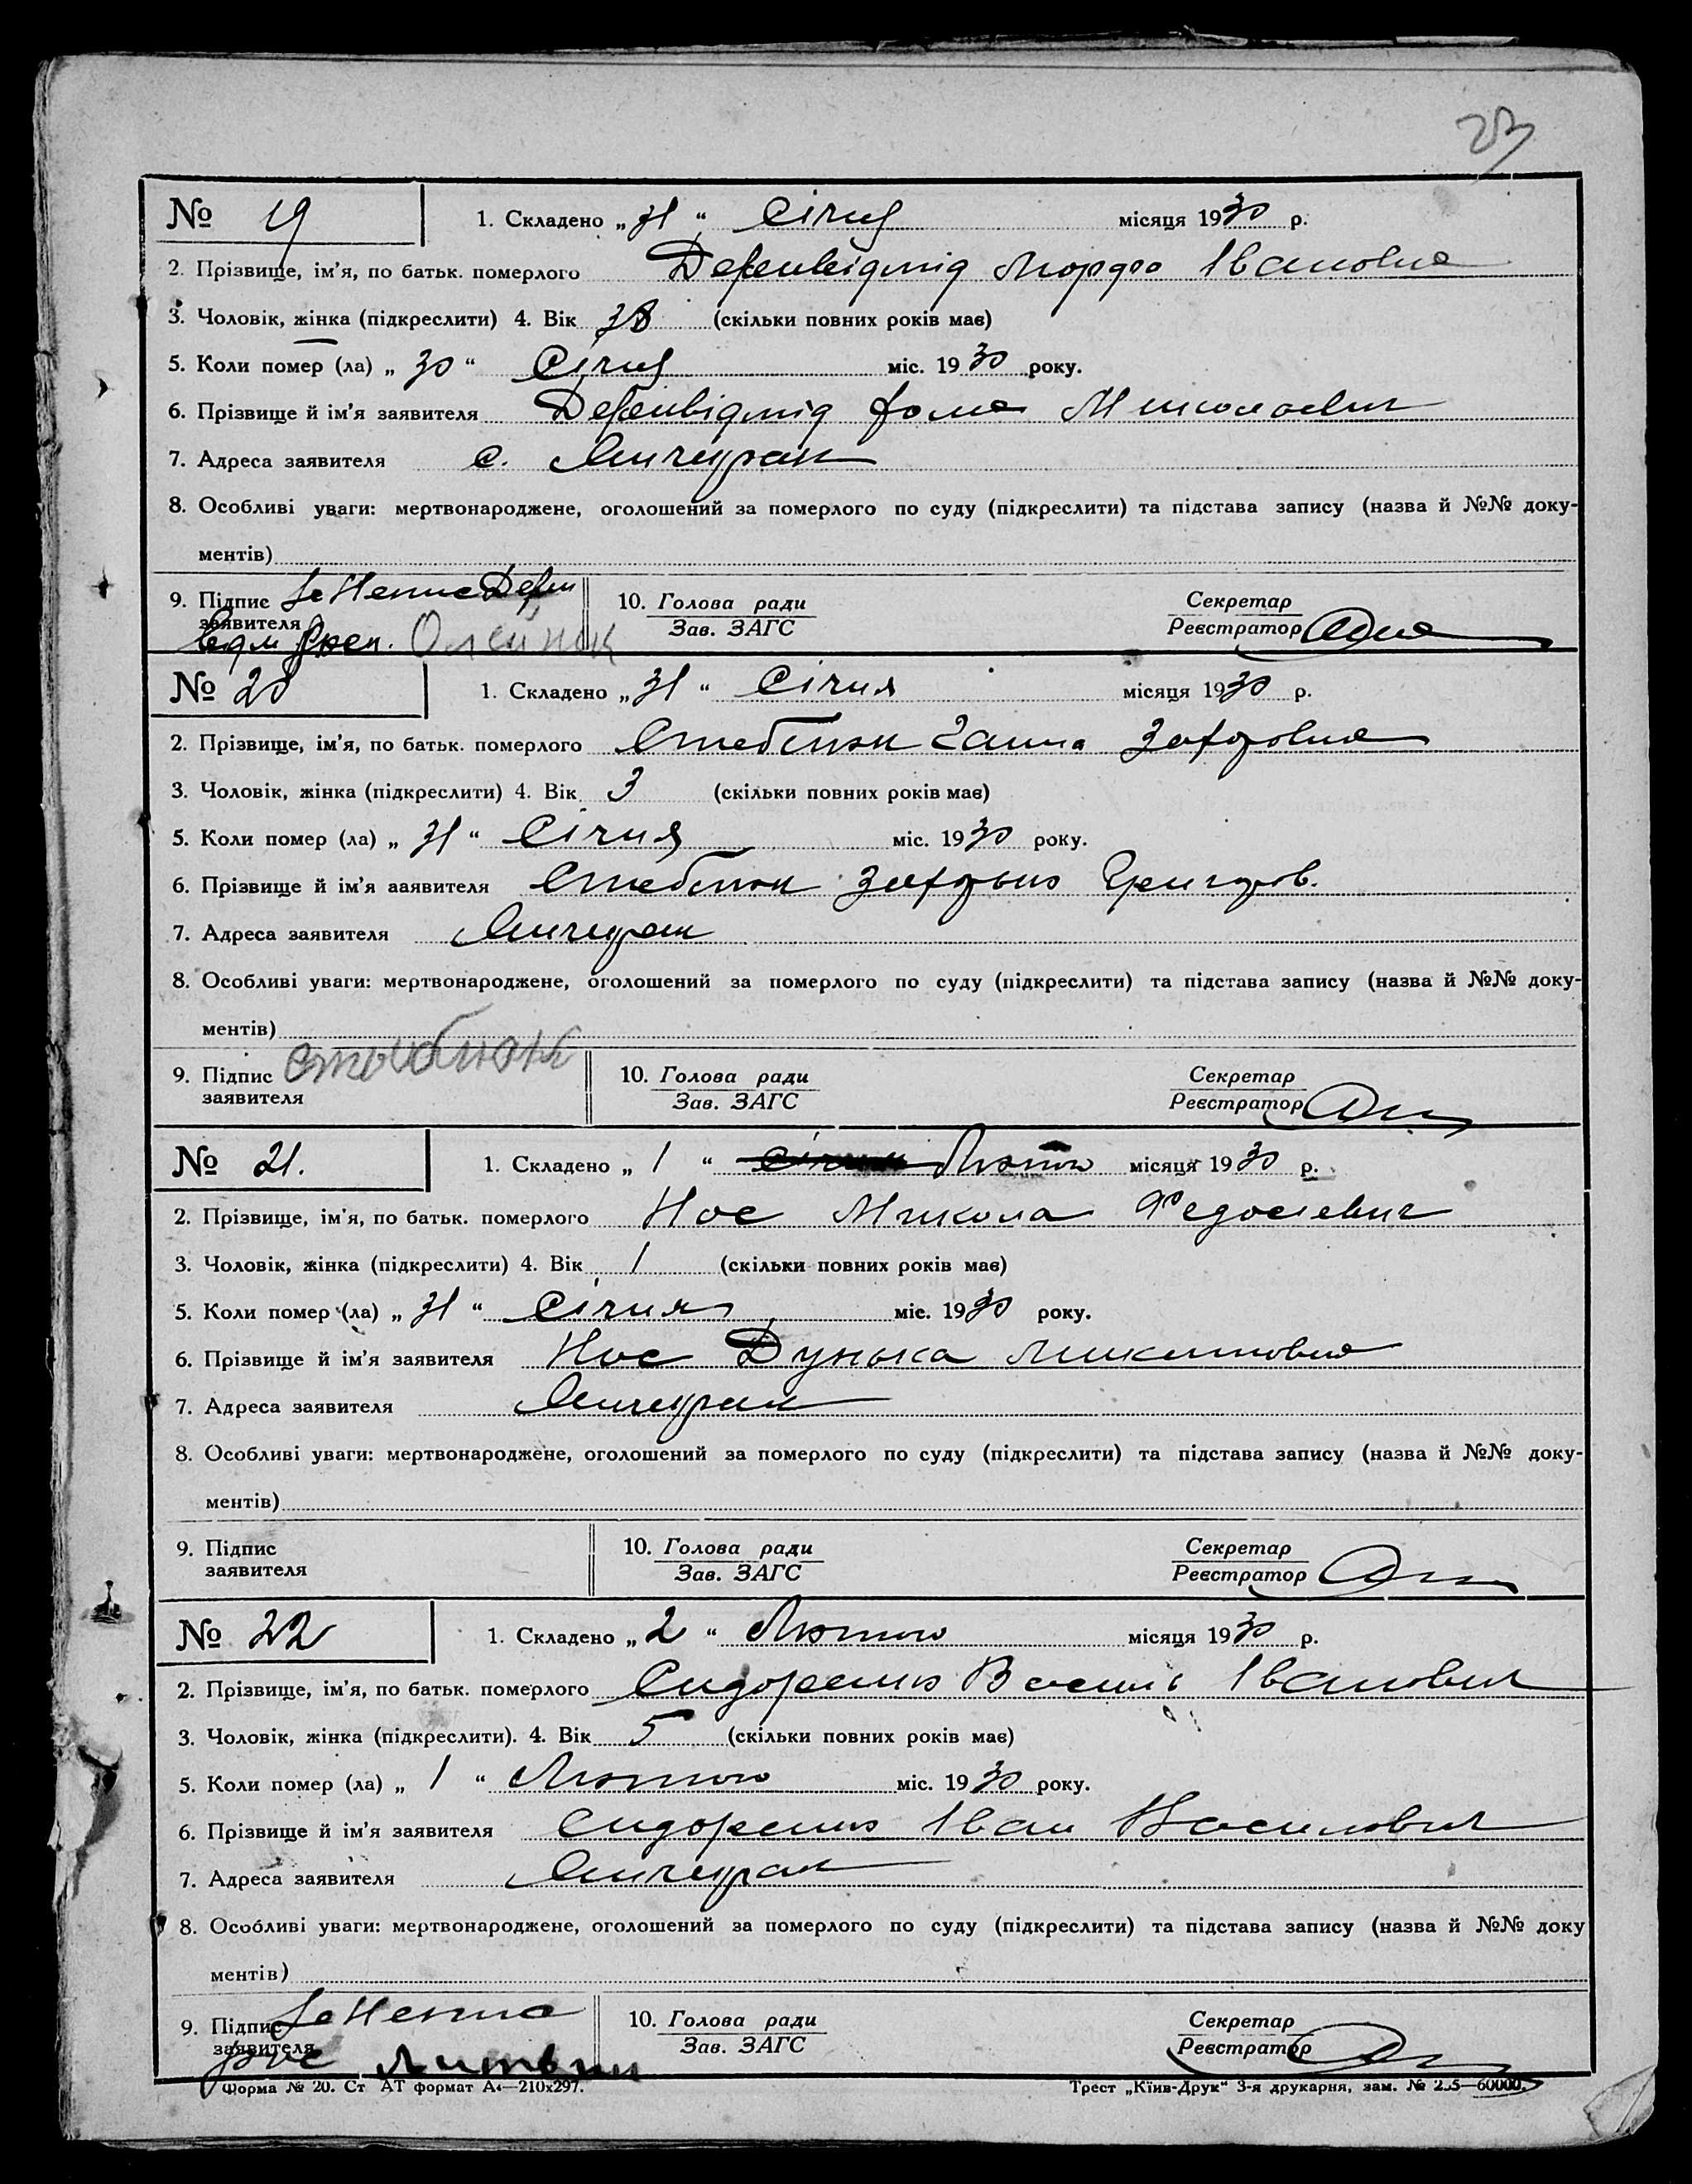 23
№ 19 1. Складено „31“ Січня місяця 1930 р.
2. Прізвище, ім'я, по батьк. померлого Деренвідмід Морфа Івановна
3. Чоловік, жінка (підкреслити) 4. Вік 38 (скільки повних років має)
5. Коли помер (ла) „30“ Січня міс. 1930 року.
6. Прізвище й ім'я заявителя Деренвідмід Фома Миколаевич
7. Адреса заявителя с.
8. Особливі уваги: мертвонароджене, оголошений за померлого по суду (підкреслити) та підстава запису (назва й №№ доку-
ментів)
9. Підпис
заявителя Олейник
10. Голова ради
Зав. ЗАГС
Секретар
Реєстратор
№ 20 1. Складено „31“ Січня місяця 1930 р.
2. Прізвище, ім'я, по батьк. померлого Стеблюк Ганна Захаровна
3. Чоловік, жінка (підкреслити) 4. Вік 3 (скільки повних років має)
5. Коли помер (ла) „31“ Січня міс. 1930 року.
6. Прізвище й ім'я ааявителя Стеблюк Захарько Григоров.
7. Адреса заявителя
8. Особливі уваги: мертвонароджене, оголошений за померлого по суду (підкреслити) та підстава запису (назва й №№ доку-
ментів)
9. Підпис
заявителя
10. Голова ради
Зав. ЗАГС
Секретар
Реєстратор
№ 21. 1. Складено „1“ Січня Лютого місяця 1930 р.
2. Прізвище, ім'я, по батьк. померлого Нос Микола Федосіевич
3. Чоловік, жінка (підкреслити) 4. Вік 1 (скільки повних років має)
5. Коли помер (ла) „31“ Січня міс. 1930 року.
6. Прізвище й ім'я заявителя Нос Дунька Микитовна
7. Адреса заявителя
8. Особливі уваги: мертвонароджене, оголошений за померлого по суду (підкреслити) та підстава запису (назва й №№ доку-
ментів)
9. Підпис
заявителя
10. Голова ради
Зав. ЗАГС
Секретар
Реєстратор
№ 22 1. Складено „2“ Лютого місяця 1930 р.
2. Прізвище, ім'я, по батьк. померлого Сидоренко Василь Іванович
3. Чоловік, жінка (підкреслити). 4. Вік 5 (скільки повних років має)
5. Коли помер (ла) „1“ Лютого міс. 1930 року.
6. Прізвище й ім'я заявителя Сидоренко Іван Василович
7. Адреса заявителя
8. Особливі уваги: мертвонароджене, оголошений за померлого по суду (підкреслити) та підстава запису (назва й №№ доку
ментів)
9. Підпис
заявителя Литвин
10. Голова ради
Зав. ЗАГС
Секретар
Реєстратор
Форма № 20. Ст АТ формат А4—210х297.
Трест „Київ-Друк“ 3-я друкарня, зам. № 235—60000.